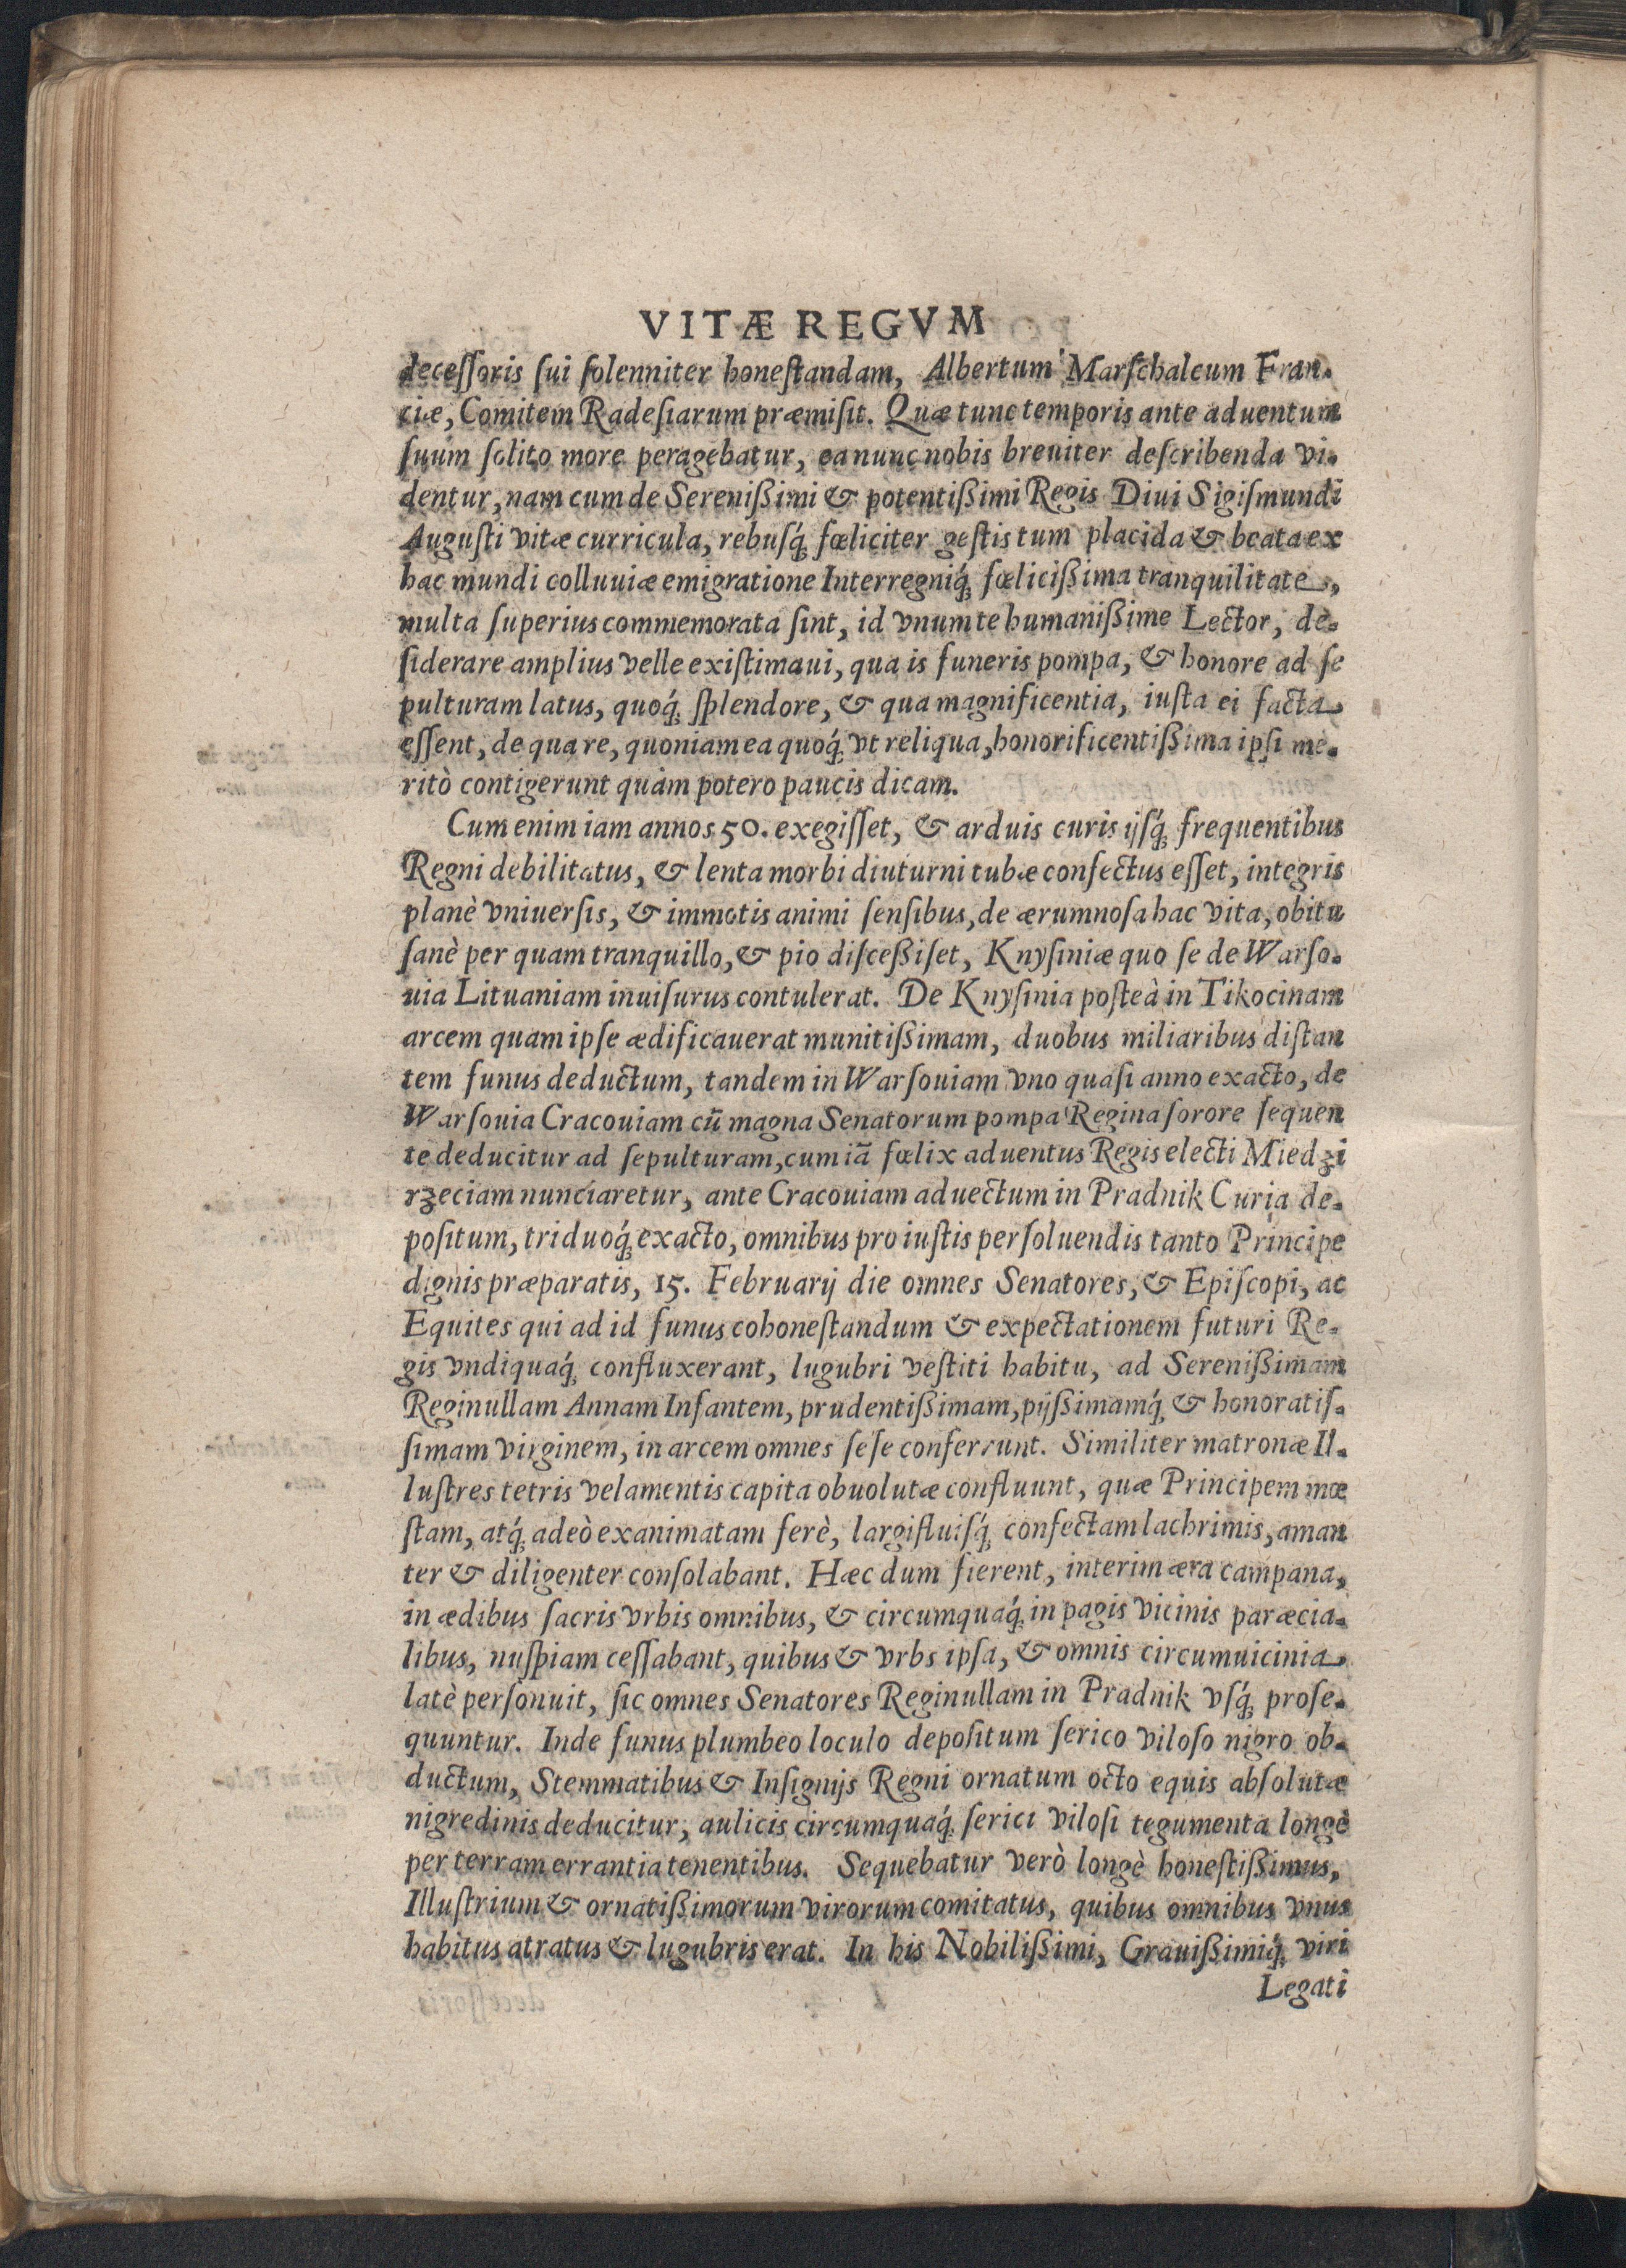 VITÆ REGVM
deceſſoris ſui ſolenniter honeſtandam, Albertum Marſchalcum Fran-
ciæ, Comitem Radeſiarum præmiſit. Quæ tunc temporis ante aduentum
ſuum ſolito more peragebatur, ea nunc nobis breuiter deſcribenda vi-
dentur, nam cum de Sereniſſimi & potentiſſimi Regis Diui Sigiſmundi
Auguſti vitæ curricula, rebuſq́; fœliciter geſtis tum placida & beata ex
hac mundi colluuiæ emigratione Interregniq́; fœliciſſima tranquilitate,
multa ſuperius commemorata ſint, id vnum te humaniſſime Lector, de-
ſiderare amplius velle exiſtimaui, qua is funeris pompa, & honore ad ſe
pulturam latus, quoq́; ſplendore, & qua magnificentia, iuſta ei facta
eſſent, de qua re, quoniam ea quoq́; vt reliqua, honorificentiſſima ipſi me-
ritò contigerunt quàm potero paucis dicam.
Cum enim iam annos 50. exegiſſet, & arduis curis ijſq́; frequentibus
Regni debilitatus, & lenta morbi diuturni tubæ confectus eſſet, integris
planè vniuerſis, & immotis animi ſenſibus, de ærumnoſa hac vita, obitu
ſanè per quam tranquillo, & pio diſceſſiſet, Knyſiniæ quo ſe de Warſo-
uia Lituaniam inuiſurus contulerat. De Knyſinia poſteà in Tikocinam
arcem quam ipſe ædificauerat munitiſſimam, duobus miliaribus diſtan
tem funus deductum, tandem in Warſouiam vno quaſi anno exacto, de
Warſouia Cracouiam cũ magna Senatorum pompa Regina ſorore ſequen
te deducitur ad ſepulturam, cum iã fœlix aduentus Regis electi Miedzi
rzeciam nunciaretur, ante Cracouiam aduectum in Pradnik Curia de-
poſitum, triduoq́; exacto, omnibus pro iuſtis perſoluendis tanto Principe
dignis præparatis, 15. Februarij die omnes Senatores, & Epiſcopi, ac
Equites qui ad id funus cohoneſtandum & expectationem futuri Re-
gis vndiquaq́; confluxerant, lugubri veſtiti habitu, ad Sereniſſimam
Reginullam Annam Infantem, prudentiſſimam, pijſſimamq́; & honoratiſ-
ſimam virginem, in arcem omnes ſeſe conferrunt. Similiter matronæ Il-
luſtres tetris velamentis capita obuolutæ confluunt, quæ Principem mœ
ſtam, atq́; adeò exanimatam ferè, largifluiſq́; confectam lachrimis, aman
ter & diligenter conſolabant. Hæc dum fierent, interim æra campana,
in ædibus ſacris vrbis omnibus, & circumquaq́; in pagis vicinis paræcia-
libus, nuſpiam ceſſabant, quibus & vrbs ipſa, & omnis circumuicinia
latè perſonuit, ſic omnes Senatores Reginullam in Pradnik vſq́; proſe-
quuntur. Inde funus plumbeo loculo depoſitum ſerico viloſo nigro ob-
ductum, Stemmatibus & Inſignijs Regni ornatum octo equis abſolutæ
nigredinis deducitur, aulicis circumquaq́; ſerici viloſi tegumenta longè
per terram errantia tenentibus. Sequebatur verò longè honeſtiſſimus,
Illuſtrium & ornatiſſimorum virorum comitatus, quibus omnibus vnus
habitus atratus & lugubris erat. In his Nobiliſſimi, Grauiſſimiq́; viri
Legati